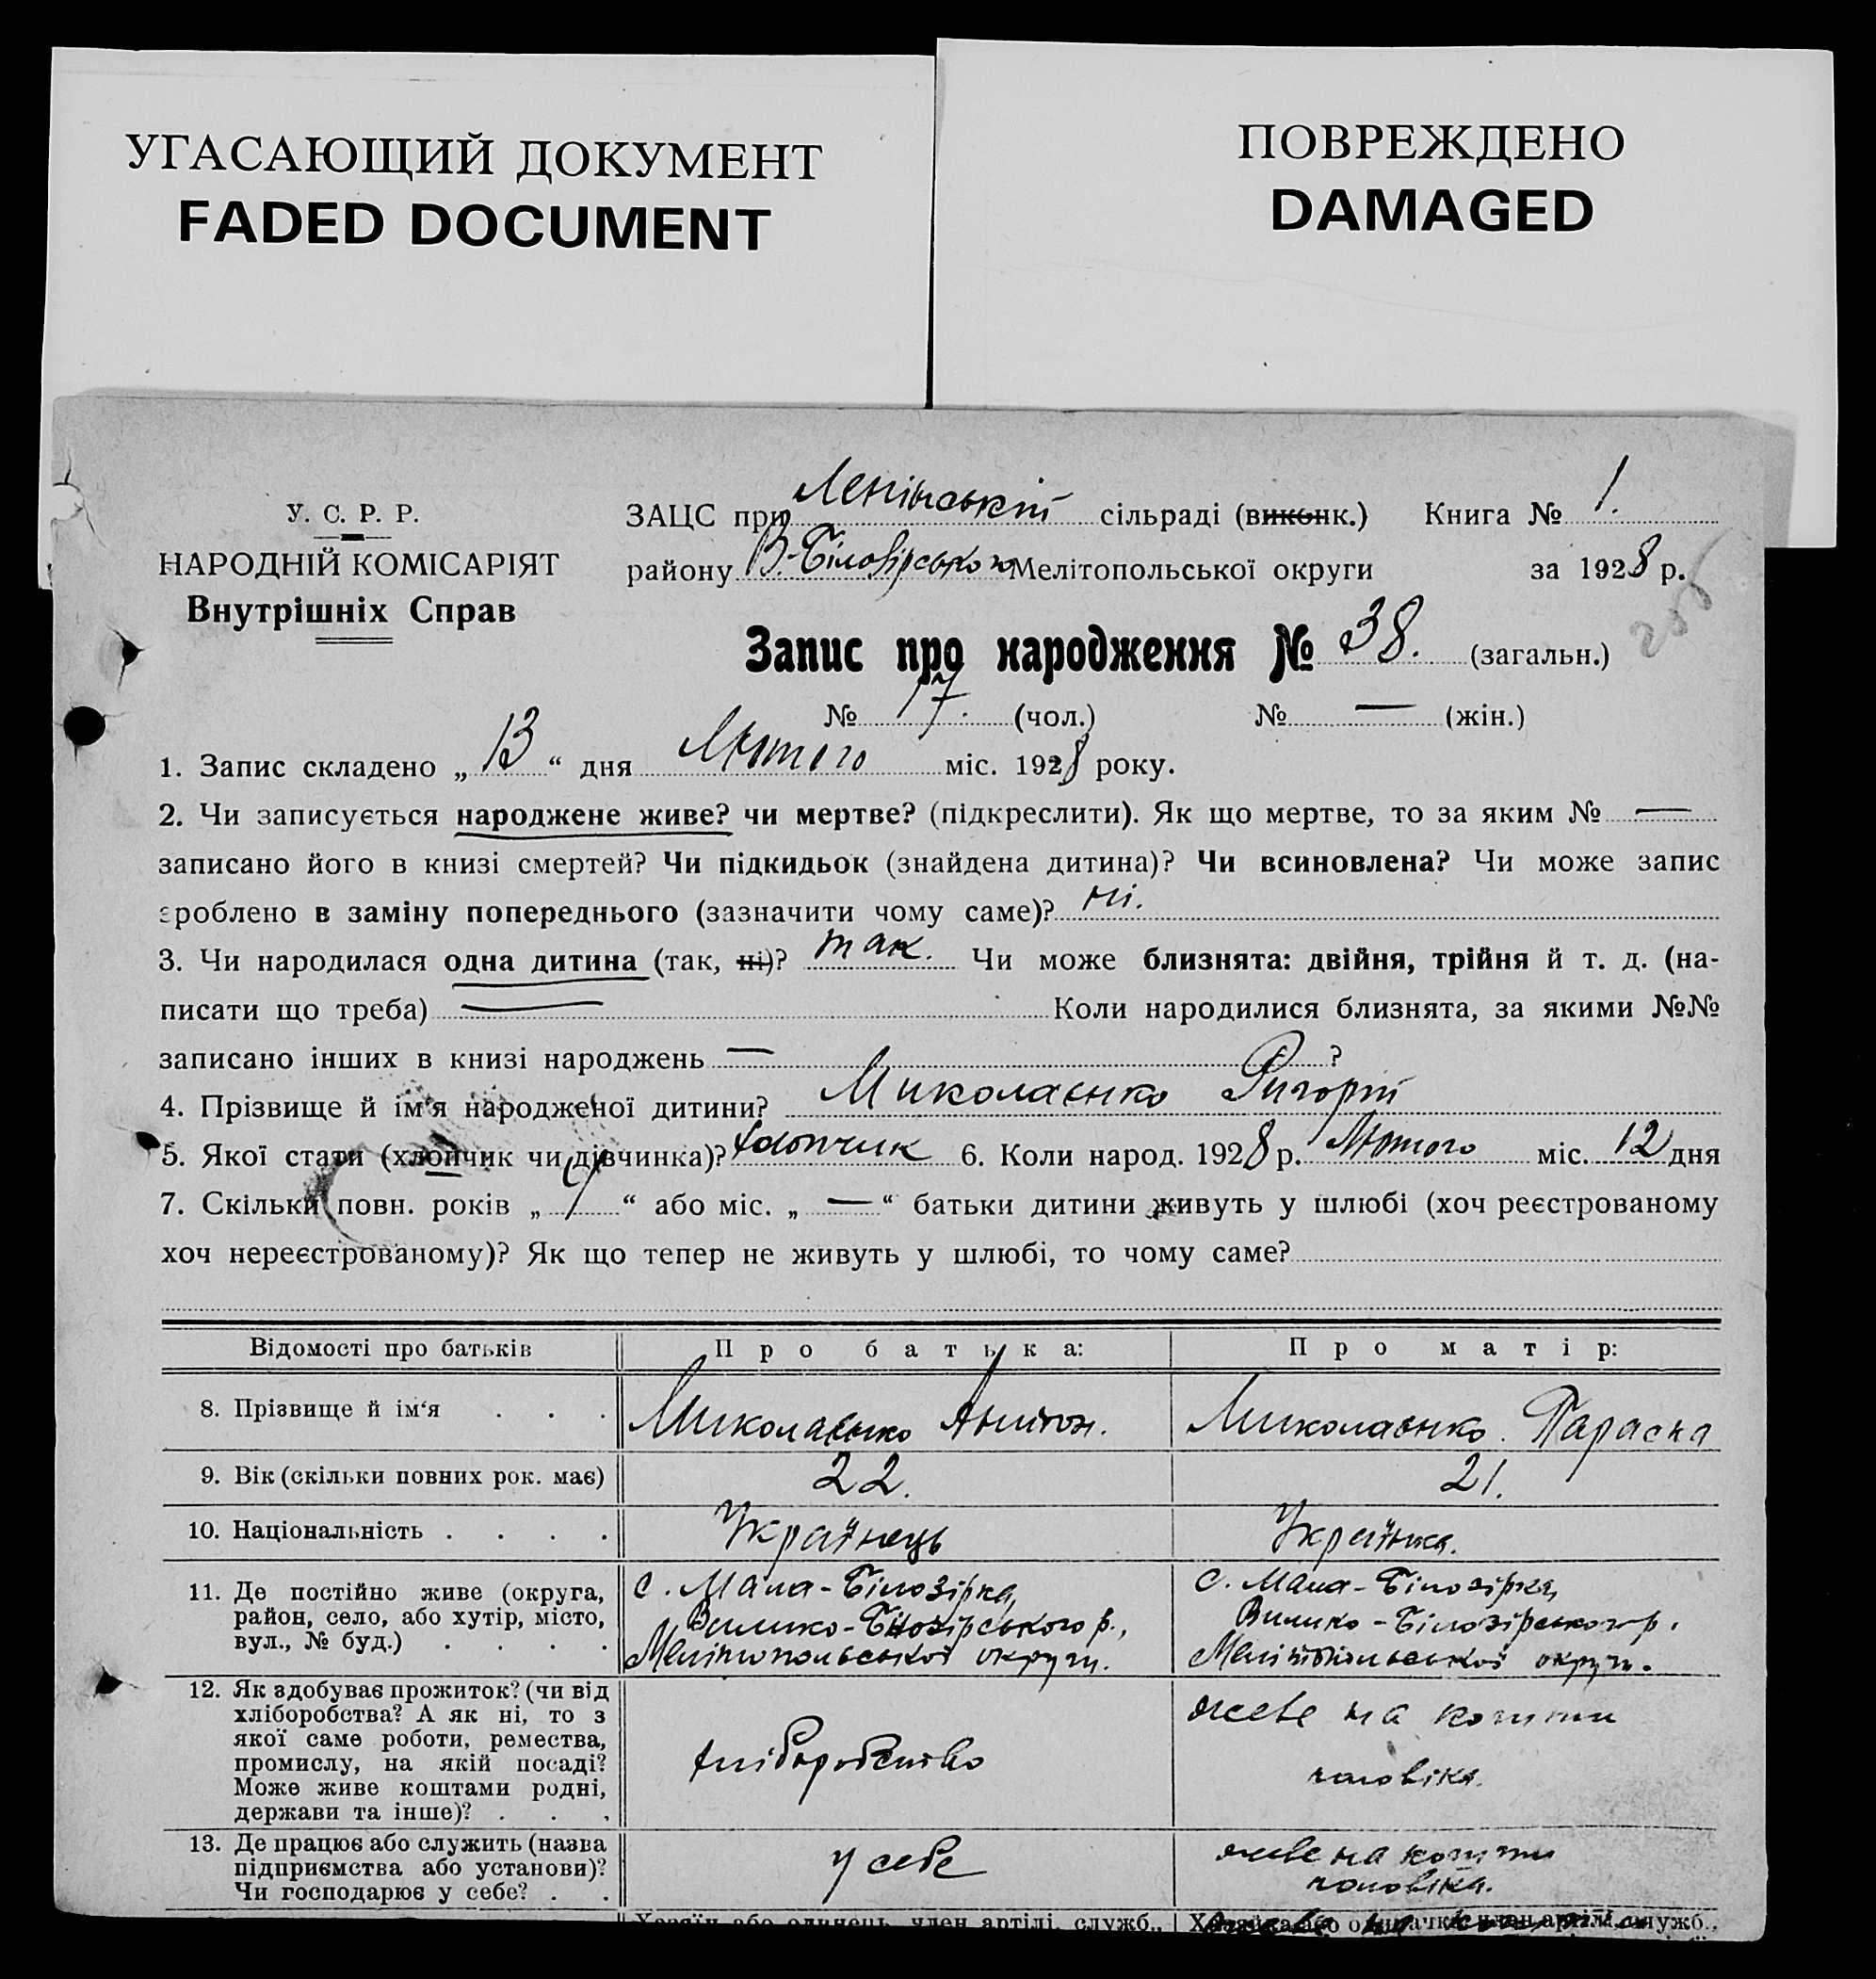 УГАСАЮЩИЙ ДОКУМЕНТ
FADED DOCUMENT
ПОВРЕЖДЕНО
DAMAGED
У. С. Р. Р.
НАРОДНІЙ КОМІСАРІЯТ
Внутрішніх Справ
ЗАЦС при Ленінській сільраді (виконк.) Книга № 1.
району В.-Білозірського Мелітопольської округи за 1928 р.
Запис про народження № 38. (загальн.)
№ 17. (чол.) № — (жін.)
1. Запис складено „ 13 “ дня Лютого міс. 1928 року.
2. Чи записується народжене живе? чи мертве? (підкреслити). Як що мертве, то за яким № —
записано його в книзі смертей? Чи підкидьок (знайдена дитина)? Чи всиновлена? Чи може запис
зроблено в заміну попереднього (зазначити чому саме)? ні.
3. Чи народилася одна дитина (так, ні)? так. Чи може близнята: двійня, трійня й т. д. (на-
писати що треба) — Коли народилися близнята, за якими №№
записано інших в книзі народжень — ?
4. Прізвище й ім'я народженої дитини? Миколаєнко Григорій
5. Якої стати (хлопчик чи дівчинка)? хлопчик 6. Коли народ. 1928 р. Лютого міс. 12 дня
7. Скільки повн. років „ “ або міс. „ — “ батьки дитини живуть у шлюбі (хоч реєстрованому
хоч нереєстрованому)? Як що тепер не живуть у шлюбі, то чому саме?
Відомості про батьків Про батька: Про матір:
8. Прізвище й ім‘я Миколаєнко Антон. Миколаєнко. Параска
9. Вік (скільки повних рок. має) 22. 21.
10. Національність Українець Українка.
11. Де постійно живе (округа,
район, село, або хутір, місто,
вул., № буд.)
с. Мала-Білозірка,
Велико-Білозірського р.,
Мелітопольської округи.
с. Мала-Білозірка,
Велико-Білозірського р.
Мелітопольської округи.
12. Як здобуває прожиток? (чи від
хліборобства? А як ні, то з
якої саме роботи, ремества,
промислу, на якій посаді?
Може живе коштами родні,
держави та інше)?
хліборобство
живе на кошти
чоловіка.
13. Де працює або служить (назва
підприємства або установи)?
Чи господарює у себе?
у себе
живе на кошти
чоловіка.
Хазяїн або одинець, член артілі, служб.,